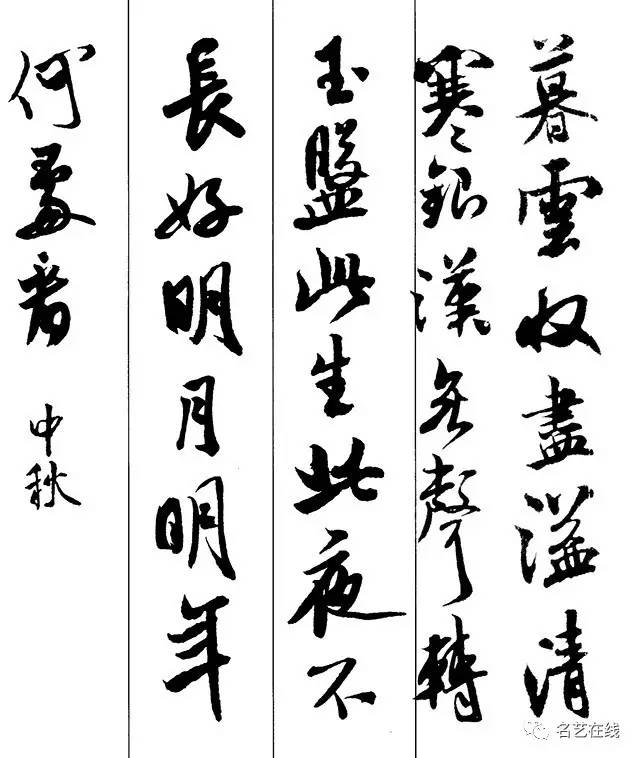 暮雲收盡溢清
寒銀漢無聲轉
玉盤此生此夜不
長好明月明年
何處看
中秋
名艺在线